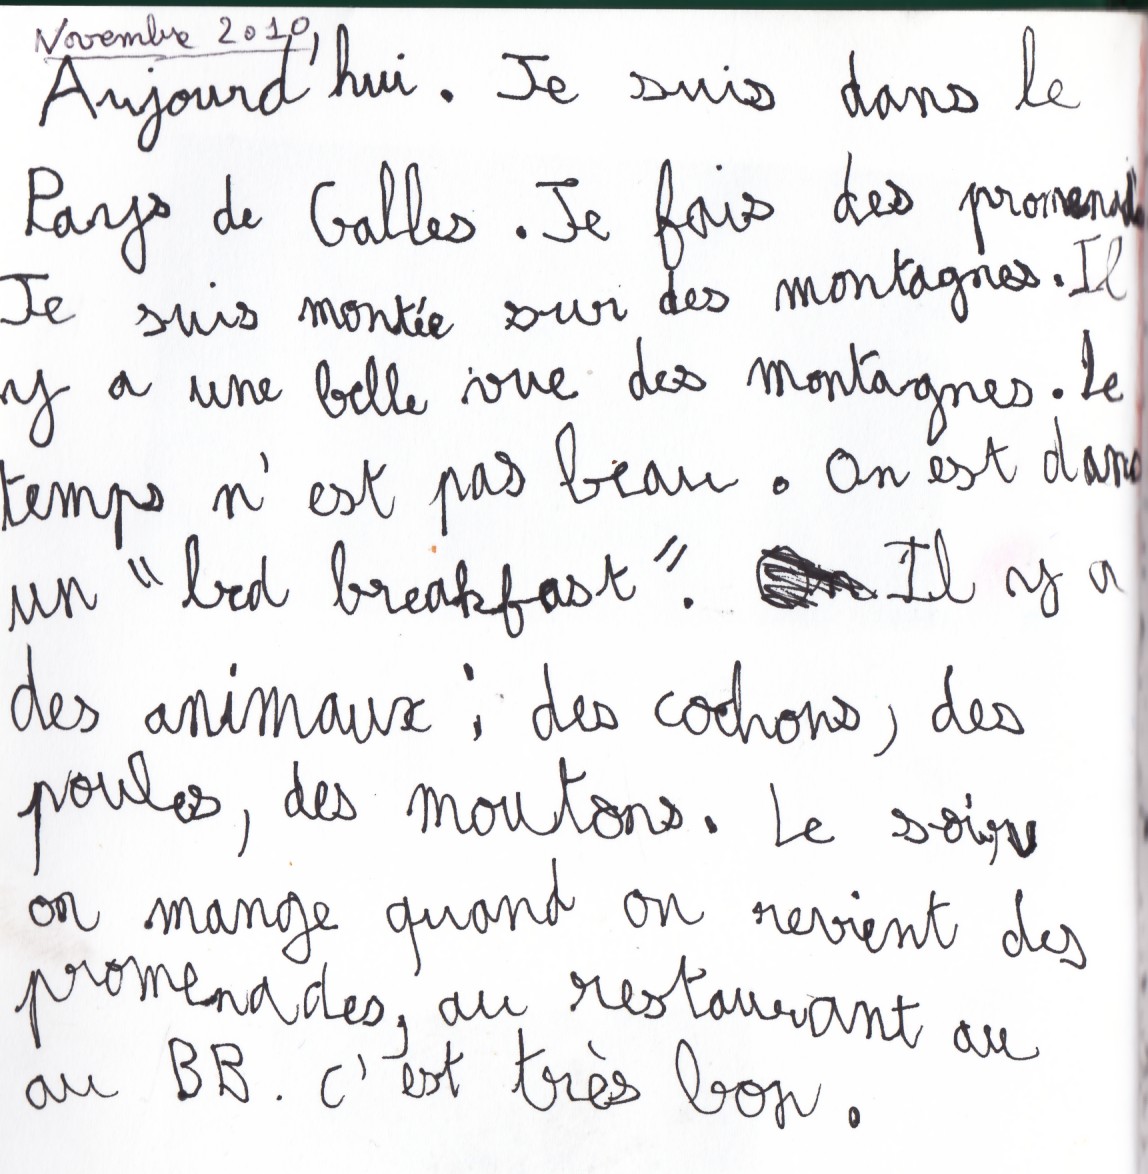 Novembre 2010,
Aujourd'hui. Je suis dans le
Pays de Galles. Je fais des promenad
Je suis montée sur des montagnes. Il
y a une belle vue des montagnes. Le
temps n'est pas beau. On est dans
un "bed breakfast". Il y a
des animaux ; des cochons, des
poules, des moutons. Le soir
on mange quand on revient des
promenades, au restaurant au
au BB. c'est très bon.